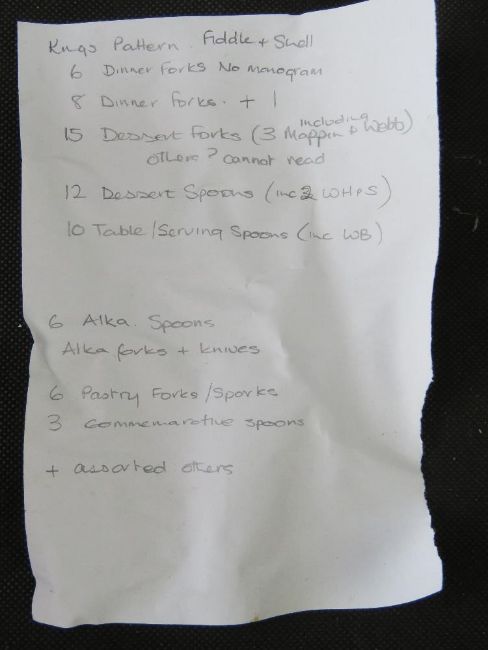 Kings Pattern. Fiddle + Shell
6 Dinner Forks No monogram
8 Dinner Forks. + 1
15 Dessert Forks (3 including Mappin & Webb)
others? cannot read
12 Dessert Spoons (inc 2 WHPS)
10 Table/Serving Spoons (inc WB)
6 Alka. Spoons
Alka forks + knives
6 Pastry Forks/Sporks
3 Commemarative spoons
+ assorted others